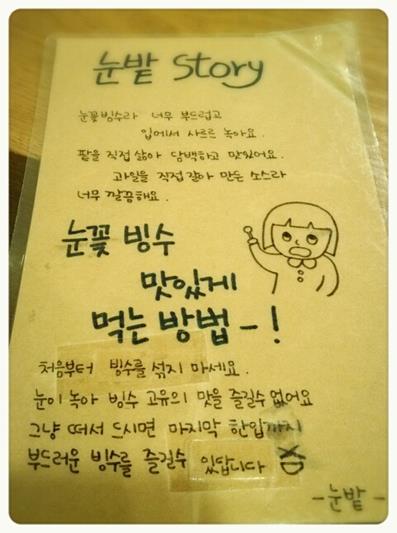 눈밭 Story
눈꽃빙수라 너무 부드럽고
입에서 사르르 녹아요.
팥을 직접 삶아 담백하고 맛있어요.
과일을 직접 갈아 만든 소스라
너무 깔끔해요.
눈꽃 빙수
맛있게
먹는 방법-!
처음부터 빙수를 섞지 마세요.
눈이 녹아 빙수 고유의 맛을 즐길수 없어요
그냥 떠서 드시면 마지막 한입까지
부드러운 빙수를 즐길수 있답니다 XD
-눈밭-